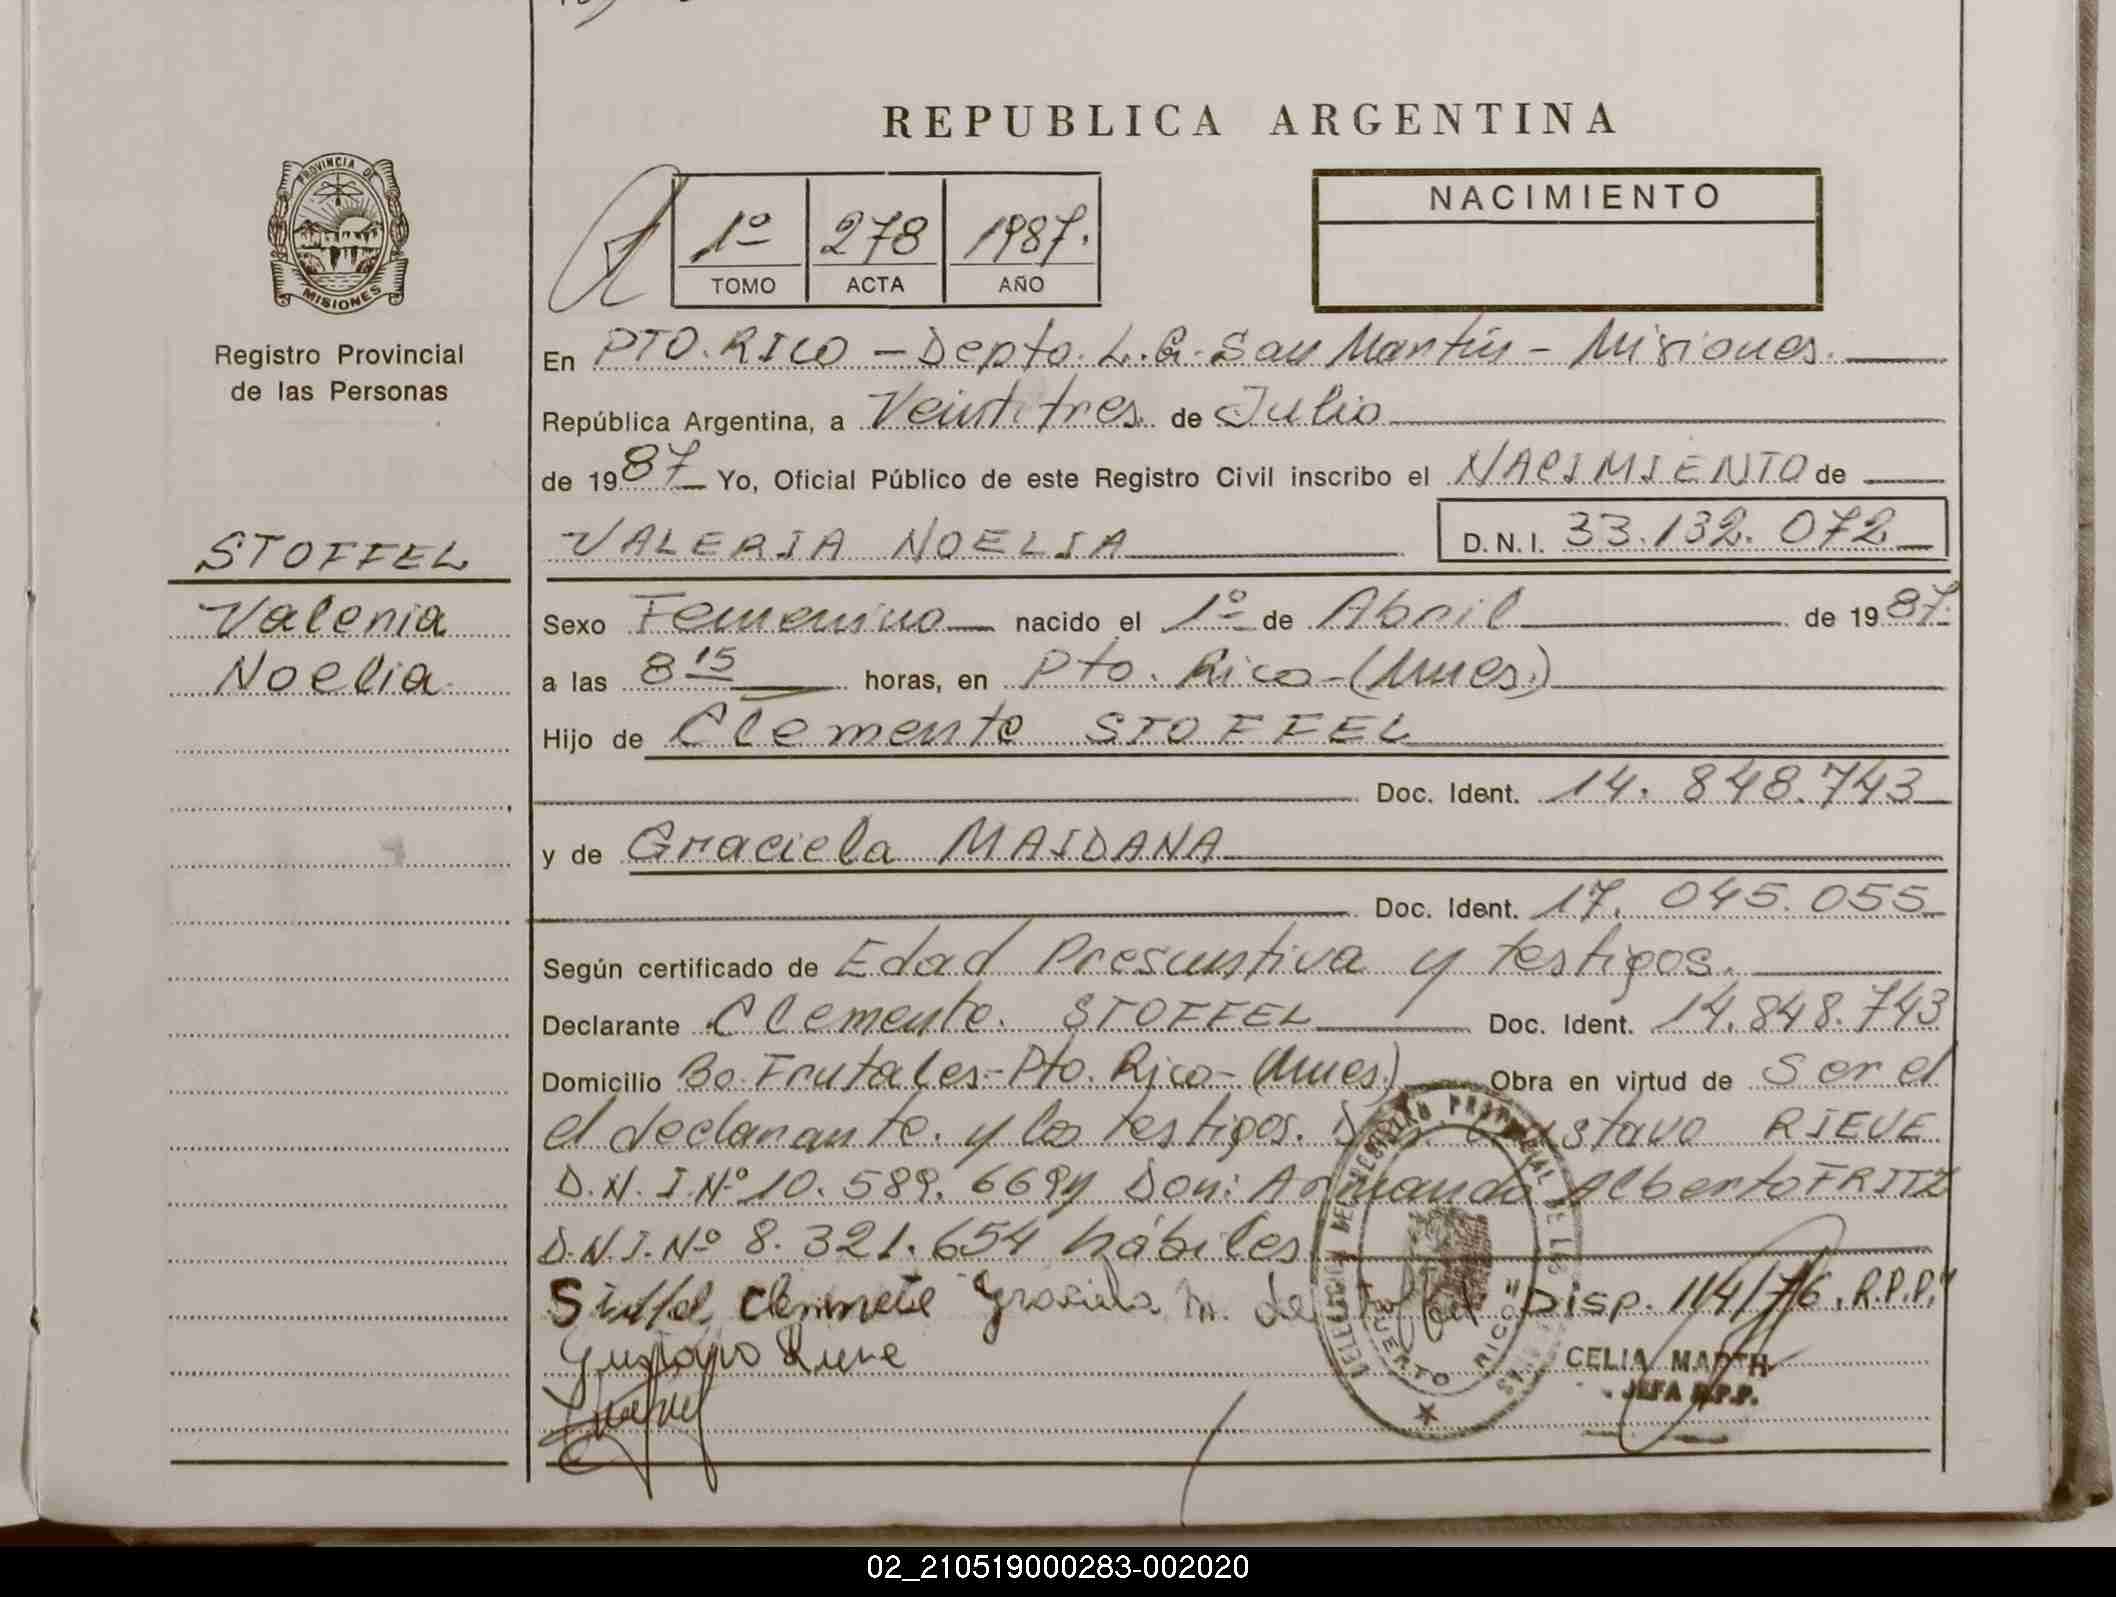 REPUBLICA ARGENTINA
PROVINCIA DE
MISIONES
Registro Provincial
de las Personas
1º 278 1987.
TOMO ACTA AÑO
NACIMIENTO
En PTO. RICO - Depto. L. G. San Martín - Misiones.
República Argentina, a Veintitres de Julio
de 1987 Yo, Oficial Público de este Registro Civil inscribo el NACIMIENTO de
STOFFEL
Valeria
Noelia
VALERIA NOELIA D.N.I. 33.132.072
Sexo Femenino nacido el 1º de Abril de 1987.
a las 8 15 horas, en Pto. Rico-(Mnes.)
Hijo de Clemente STOFFEL
Doc. Ident. 14.848.743
y de Graciela MAIDANA
Doc. Ident. 17.045.055
Según certificado de Edad Presuntiva y testigos.
Declarante Clemente. STOFFEL Doc. Ident. 14.848.743
Domicilio Bo. Frutales-Pto. Rico-(Mnes.) Obra en virtud de Ser el
el declarante. y los testigos. Gustavo RIEVE
D.N.I.Nº 10.589.669 y Don: Armando Alberto FRITZ
D.N.I.Nº 8.321.654 hábiles
DELEGACION DEL REGISTRO PROVINCIAL DE LAS
PUERTO RICO
m. de "Disp. 114/76. R.P.P."
Gustavo
CELIA MARTH
JEFA R.P.P.
02_210519000283-002020